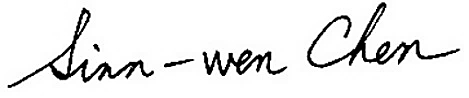 Sinn-wen Chen